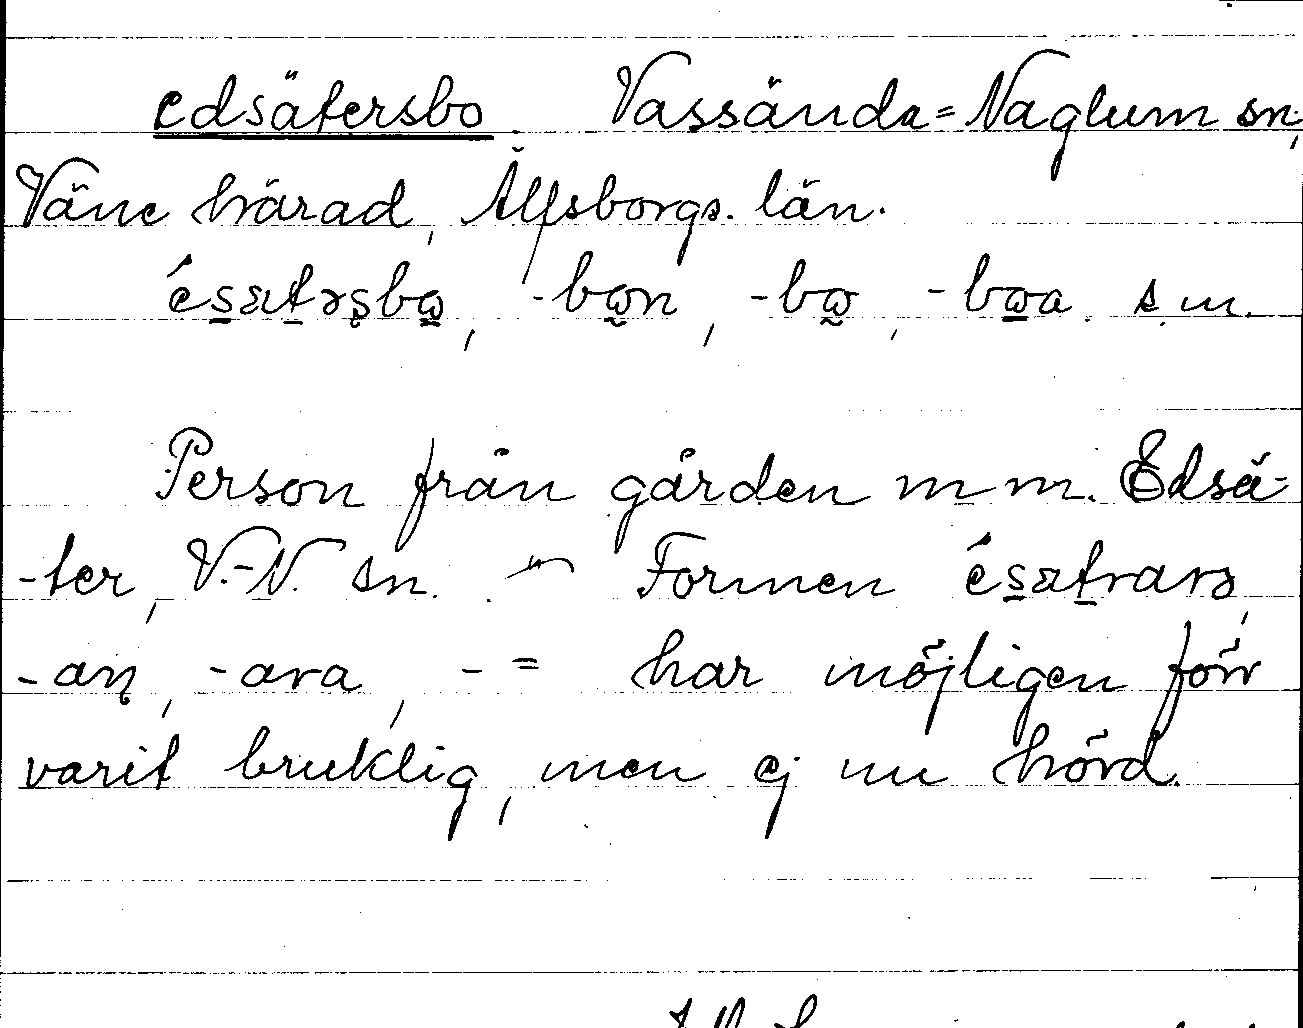 edsätersbo Vassända=Naglum sn,
Väne härad, Älfsborgs. län.
és̠ät̠əşbω̠, -bω̰n, -bω̰, -bω̠a. s.m.
Person från gården m m. Edsä-
-ter, V.-N. sn. – Formen és̠ät̠rarə,
-aņ, -ara, - = har möjligen förr
varit bruklig, men ej nu hörd.